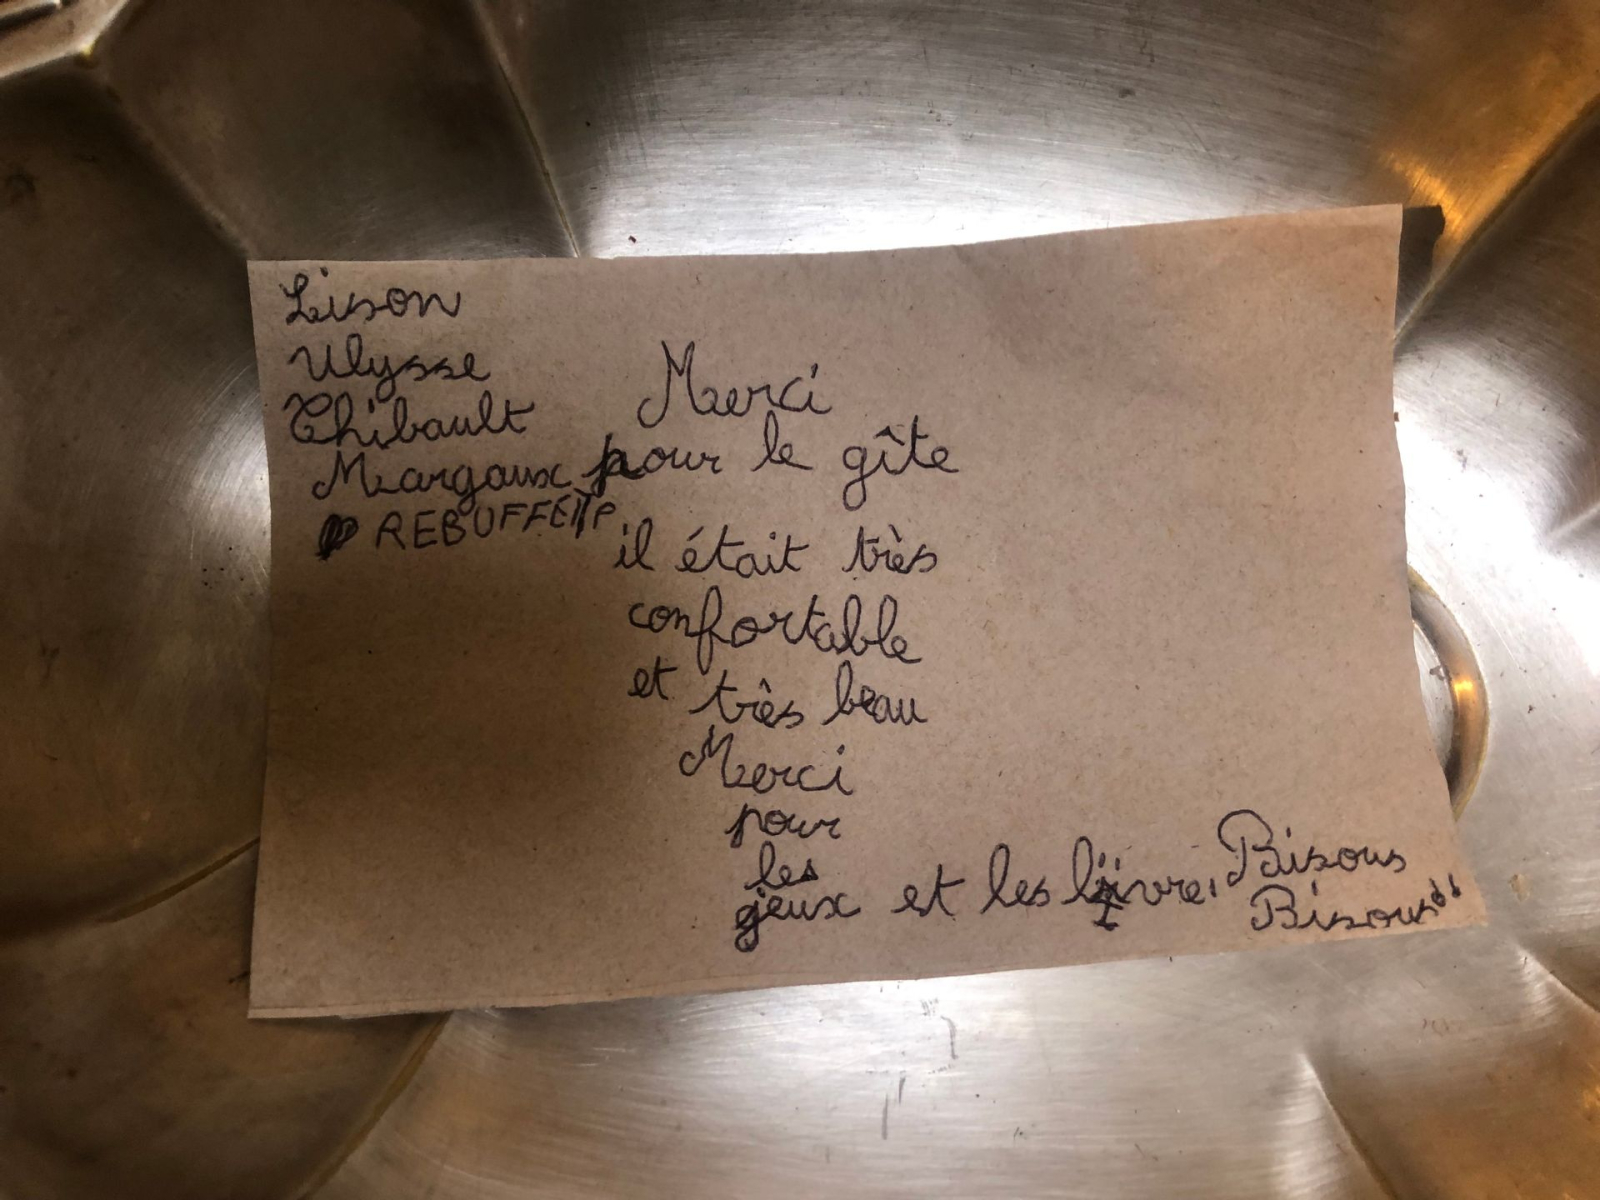 Lison
Ulysse
Thibault
Margaux
Merci
pour le gîte
il était très
confortable
et très beau
Merci
pour
les
jeux et les livre.
Bisous
Bisous